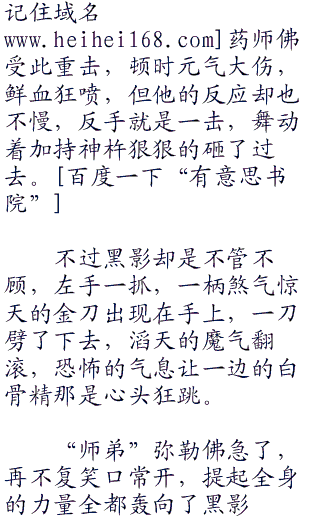 记住域名
www.heihei168.com]药师佛
受此重击，顿时元气大伤，
鲜血狂喷，但他的反应却也
不慢，反手就是一击，舞动
着加持神杵狠狠的砸了过
去。[百度一下“有意思书
院”]
不过黑影却是不管不
顾，左手一抓，一柄煞气惊
天的金刀出现在手上，一刀
劈了下去，滔天的魔气翻
滚，恐怖的气息让一边的白
骨精那是心头狂跳。
“师弟”弥勒佛急了，
再不复笑口常开，提起全身
的力量全都轰向了黑影